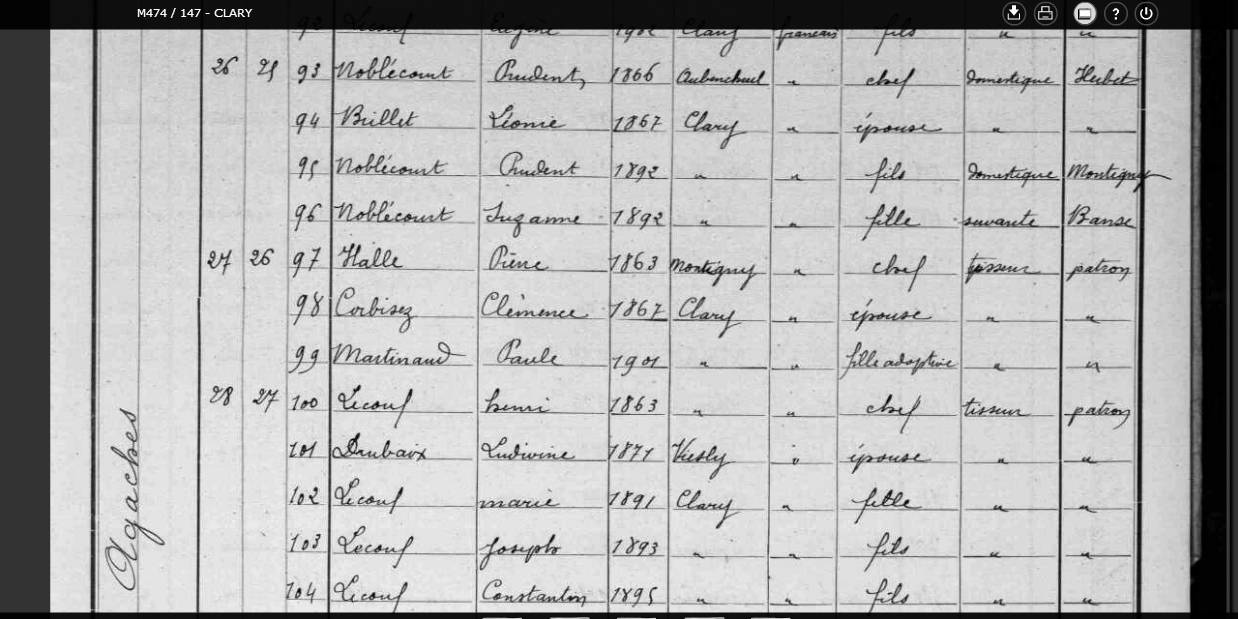 M474 / 147 - CLARY
92 Lecouf Eugène 1902 Clary français fils " "
26 25 93 Noblécourt Prudent 1866 Aubencheul " chef domestique Hubet
94 Brillet Léonie 1867 Clary " épouse " "
95 Noblécourt Prudent 1892 " " fils domestique Montigny
96 Noblécourt Suzanne 1892 " " fille suivante Banse
27 26 97 Halle Pierre 1863 Montigny " chef tisseur patron
98 Corbisez Clémence 1867 Clary " épouse " "
99 Martinaud Paule 1901 " " fille adoptive " "
28 27 100 Lecouf henri 1863 " " chef tisseur patron
101 Daubaix Ludivine 1871 Viesly " épouse " "
102 Lecouf marie 1891 Clary " fille " "
103 Lecouf Joseph 1893 " " fils " "
104 Lecouf Constantin 1895 " " fils " "
Agaches